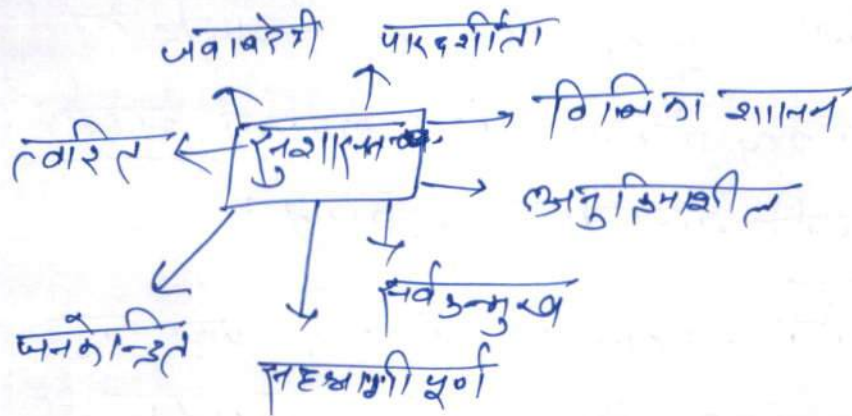 जवाबदेही पारदर्शीता
विधि का शासन
त्वरित
सुशासन
अनुक्रियाशील
सर्वउन्मुख
जनकेन्द्रित
सहभागी पूर्ण